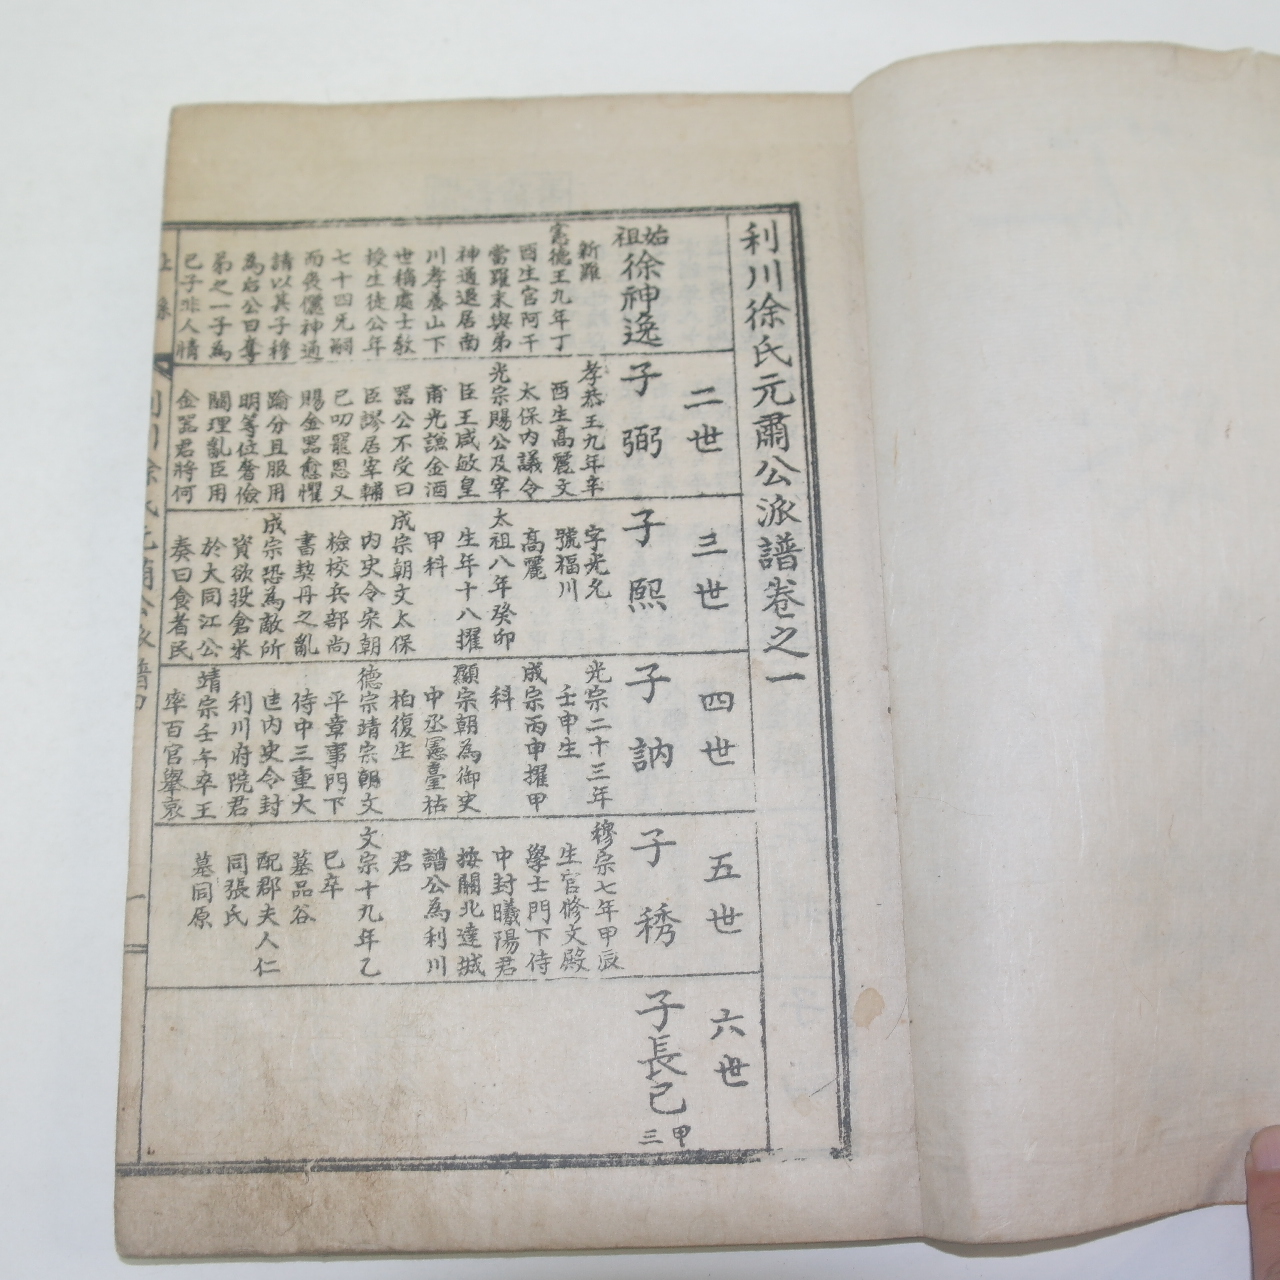 利川徐氏元肅公派譜卷之一
始祖徐神逸
新羅
憲德王九年丁
酉生官阿干
當羅末與弟
神通退居南
川孝養山下
世稱處士敎
授生徒公年
七十四死嗣
而喪儷神通
請以其子穆
為右公曰奪
弟之一子為
己子非人情
二世
子弼
孝恭王九年辛
酉生高麗文
太保內議令
光宗賜公及宰
臣王咸敏皇
甫光謙金酒
器公不受曰
臣謬居宰輔
已叨寵恩又
賜金器愈懼
踰分且服用
明等位奢儉
關理亂臣用
金器君將何
三世
子熙
字光允
號福川
高麗
太祖八年癸卯
生年十八擢
甲科
成宗朝文太保
內史令宋朝
檢校兵部尚
書契丹之亂
成宗恐為敵所
資欲投倉米
於大同江公
奏曰食者民
四世
子訥
光宗二十三年
壬申生
成宗丙申擢甲
科
顯宗朝為御史
中丞憲臺祐
柏復生
德宗靖宗朝文
平章事門下
侍中三重大
匡內史令封
利川府院君
靖宗壬午卒王
率百官擧哀
五世
子琇
穆宗七年甲辰
生官修文殿
學士門下侍
中封曦陽君
按關北達城
譜公為利川
君
文宗十九年乙
巳卒
墓品谷
配郡夫人仁
同張氏
墓同原
六世
子長己
甲三